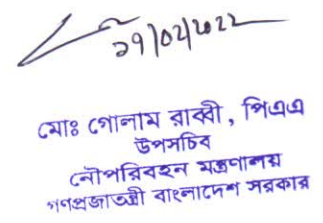 ২৭/০২/২০২২
মোঃ গোলাম রাব্বী, পিএএ
উপসচিব
নৌপরিবহন মন্ত্রণালয়
গণপ্রজাতন্ত্রী বাংলাদেশ সরকার